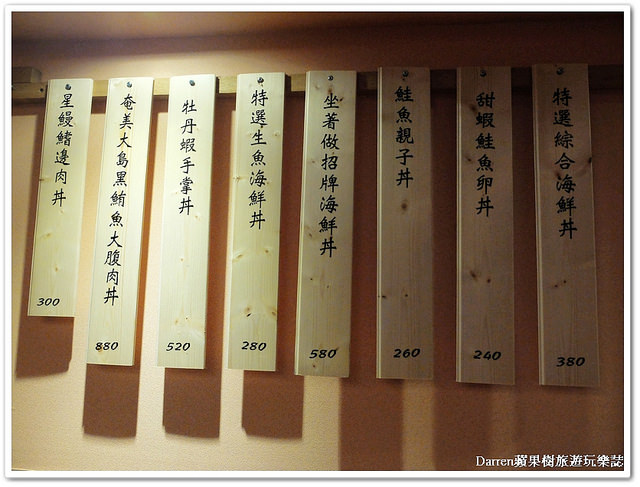 星鰻鰭邊肉丼
300
奄美大島黑鮪魚大腹肉丼
880
牡丹蝦手掌丼
520
特選生魚海鮮丼
280
坐著做招牌海鮮丼
580
鮭魚親子丼
260
甜蝦鮭魚卵丼
240
特選綜合海鮮丼
380
Darren蘋果樹旅遊玩樂誌